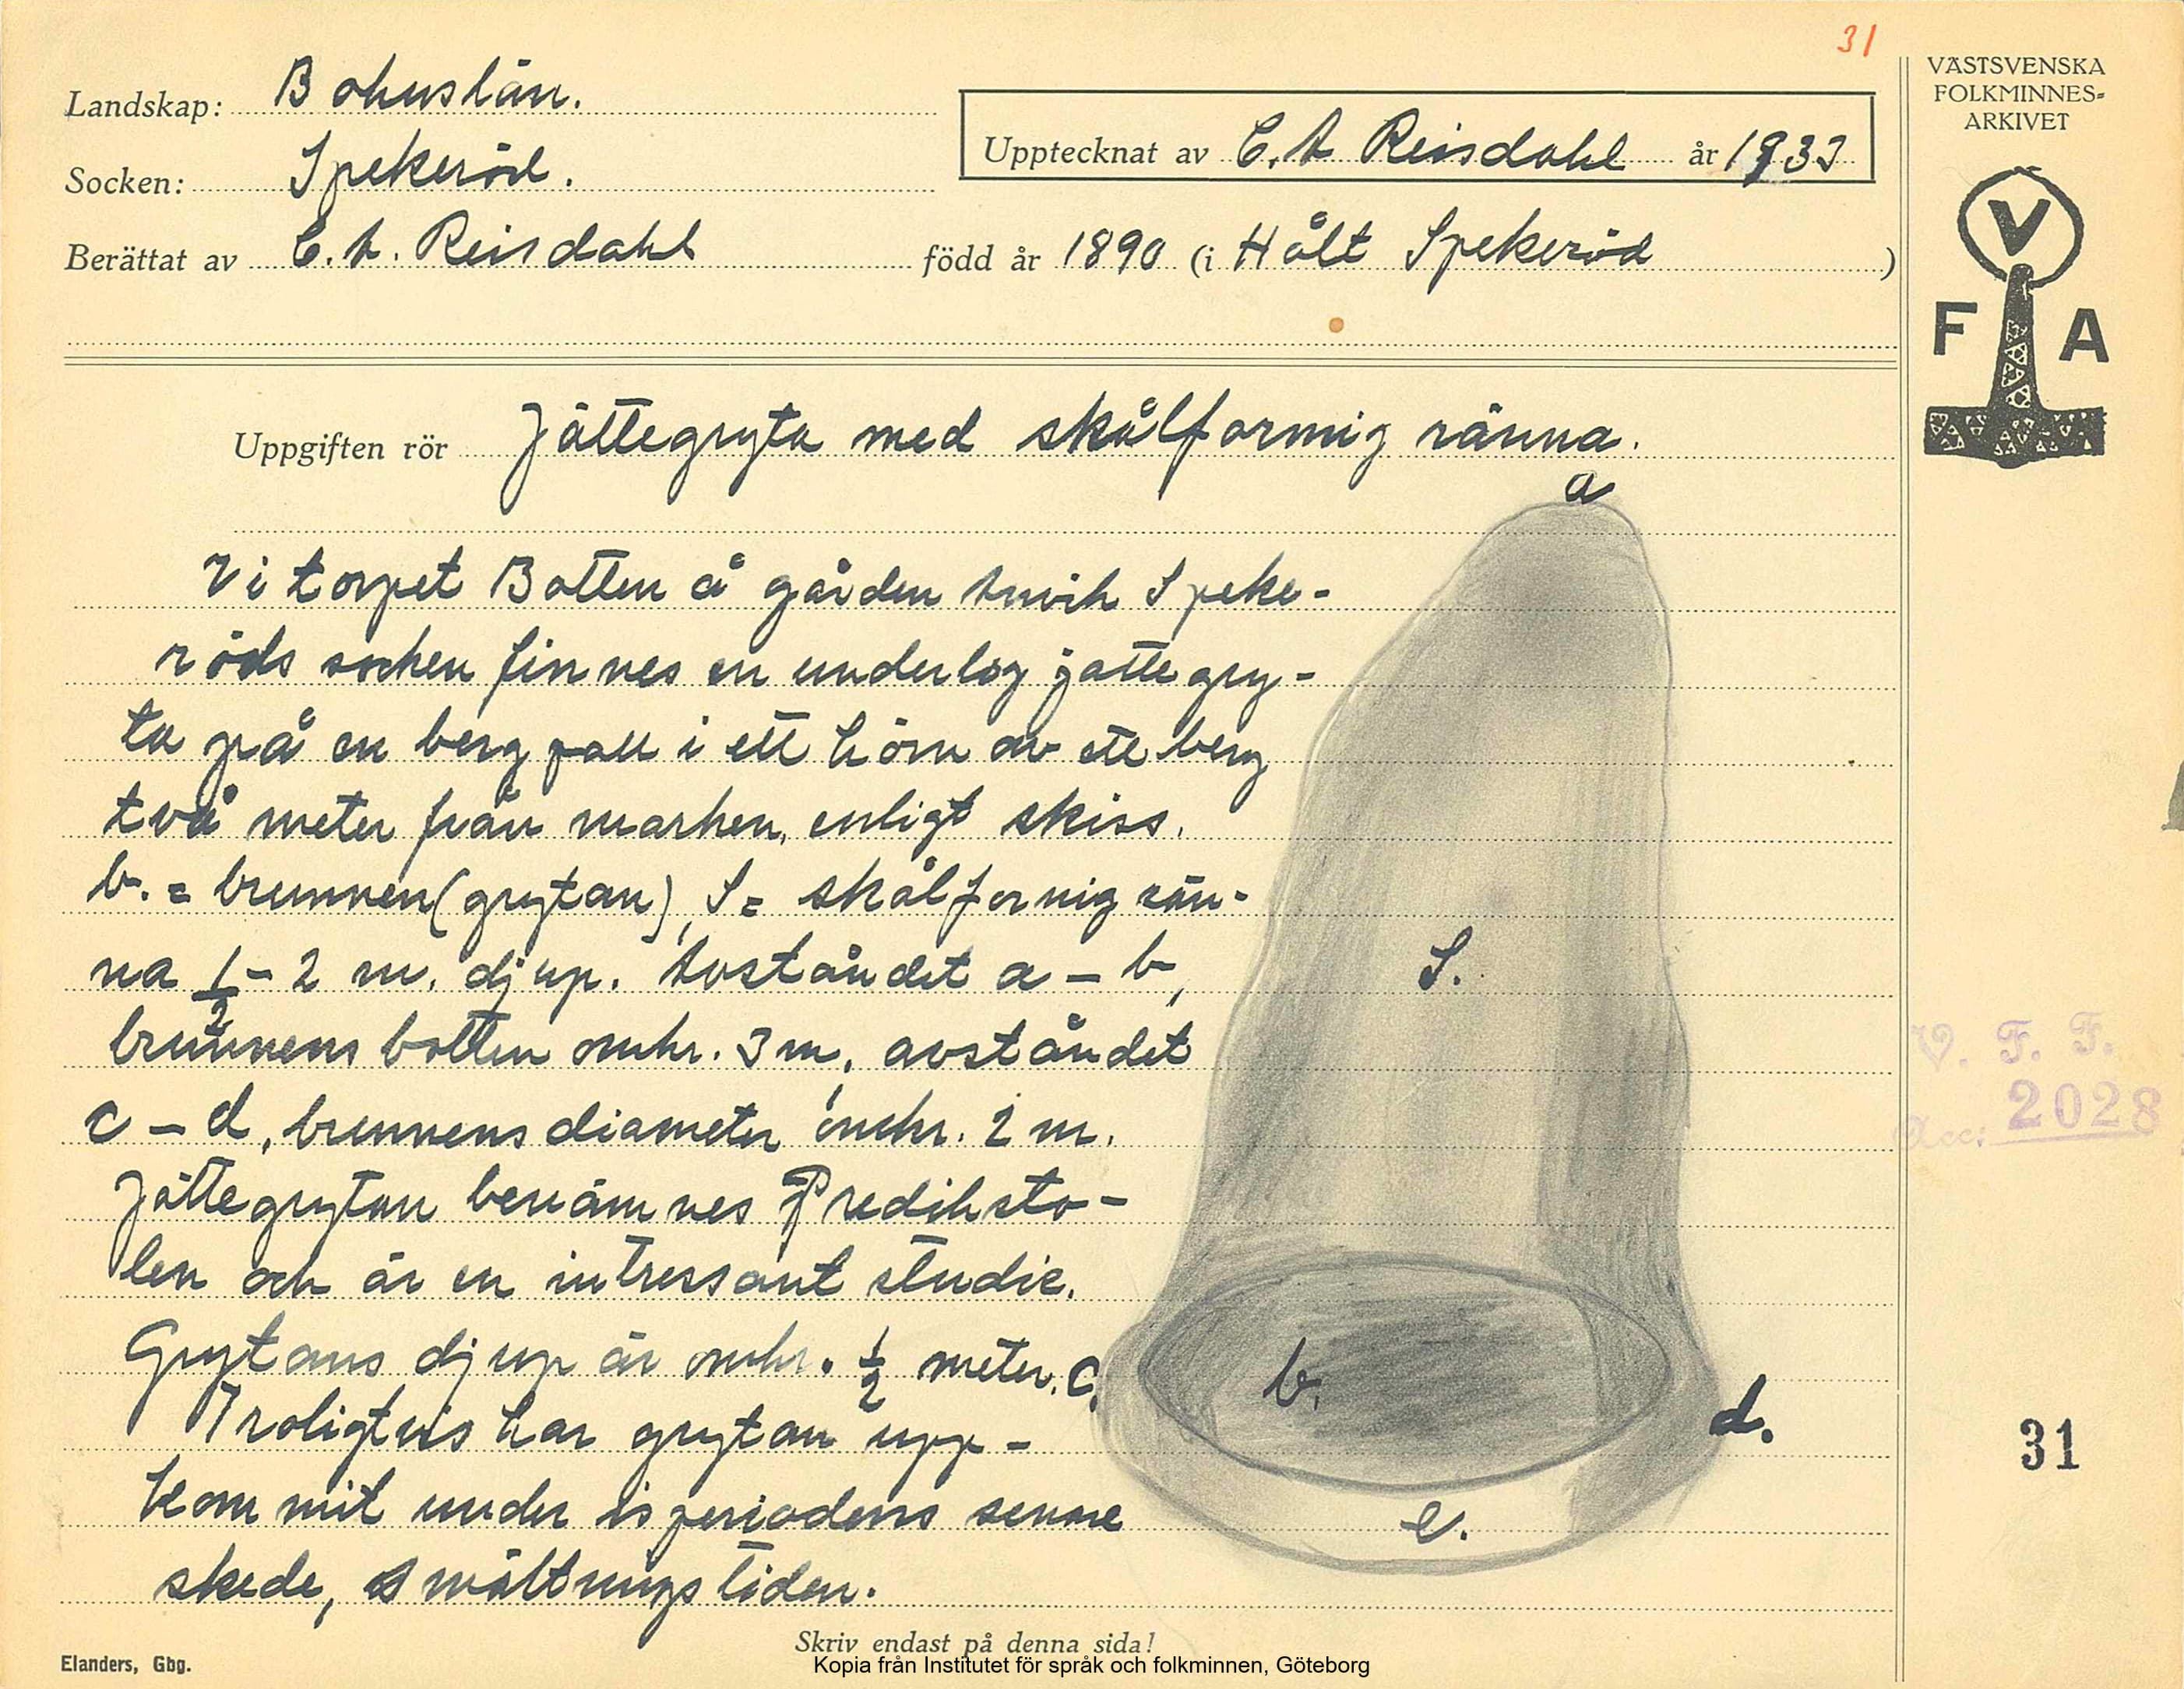 31
Landskap: Bohuslän.
Socken: Spekeröd.
Berättat av C. A. Reisdahl född år 1890 (i Hålt Spekeröd )
Upptecknat av C. A Reisdahl år 1933
VÄSTSVENSKA
FOLKMINNES-
ARKIVET
V
F A
Uppgiften rör Jättegryta med skålformig ränna.
a
Vi torpet Botten å gården Speke-
röds socken finnes en underlog jättegry-
ta på en berg pall i ett hörn av ett berg
två meter från marken, enligt skiss.
b. = brunnen (grytan), S = skålformig rän-
na 1/2 - 2 m. djup. Avståndet a - b,
brunnens botten omkr. 3 m, avståndet
c - d, brunnens diameter omkr. 2 m.
Jättegrytan benämnes Prediksto-
len och är en intressant studie.
Grytans djup är omkr. 1/2 meter.
Troligtvis har grytan upp-
kommit under isperiodens senare
skede, smältningstiden.
S.
b.
c.
d.
e.
V. F. F.
Acc: 2028
31
Skriv endast på denna sida!
Elanders, Gbg.
Kopia från Institutet för språk och folkminnen, Göteborg